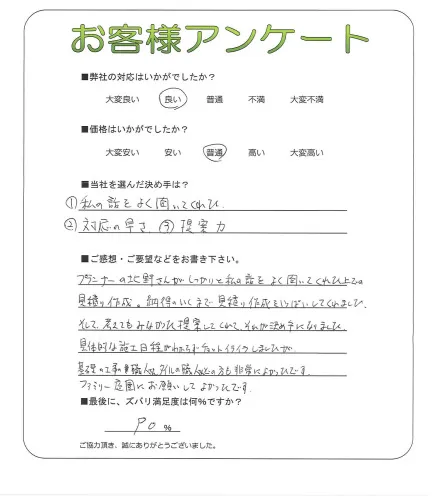 お客様アンケート
■弊社の対応はいかがでしたか?
大変良い 良い 普通 不満 大変不満
■価格はいかがでしたか?
大変安い 安い 普通 高い 大変高い
■当社を選んだ決め手は?
①私の話をよく聞いてくれた
②対応の早さ ③提案力
■ご感想・ご要望などをお書き下さい。
プランナーの北野さんがしっかりと私の話をよく聞いてくれた上での
見積り作成。納得のいくまで見積り作成をいっぱいしてくれました。
そして、考えても提案してくれて、それが決め手になりました。
具体的な施工日程がわからずチョットイライラしましたが
基礎の工事の職人、タイルの職人の方も非常によかったです。
ファミリー庭園にお願いしてよかったです。
■最後に、ズバリ満足度は何%ですか?
90 %
ご協力頂き、誠にありがとうございました。